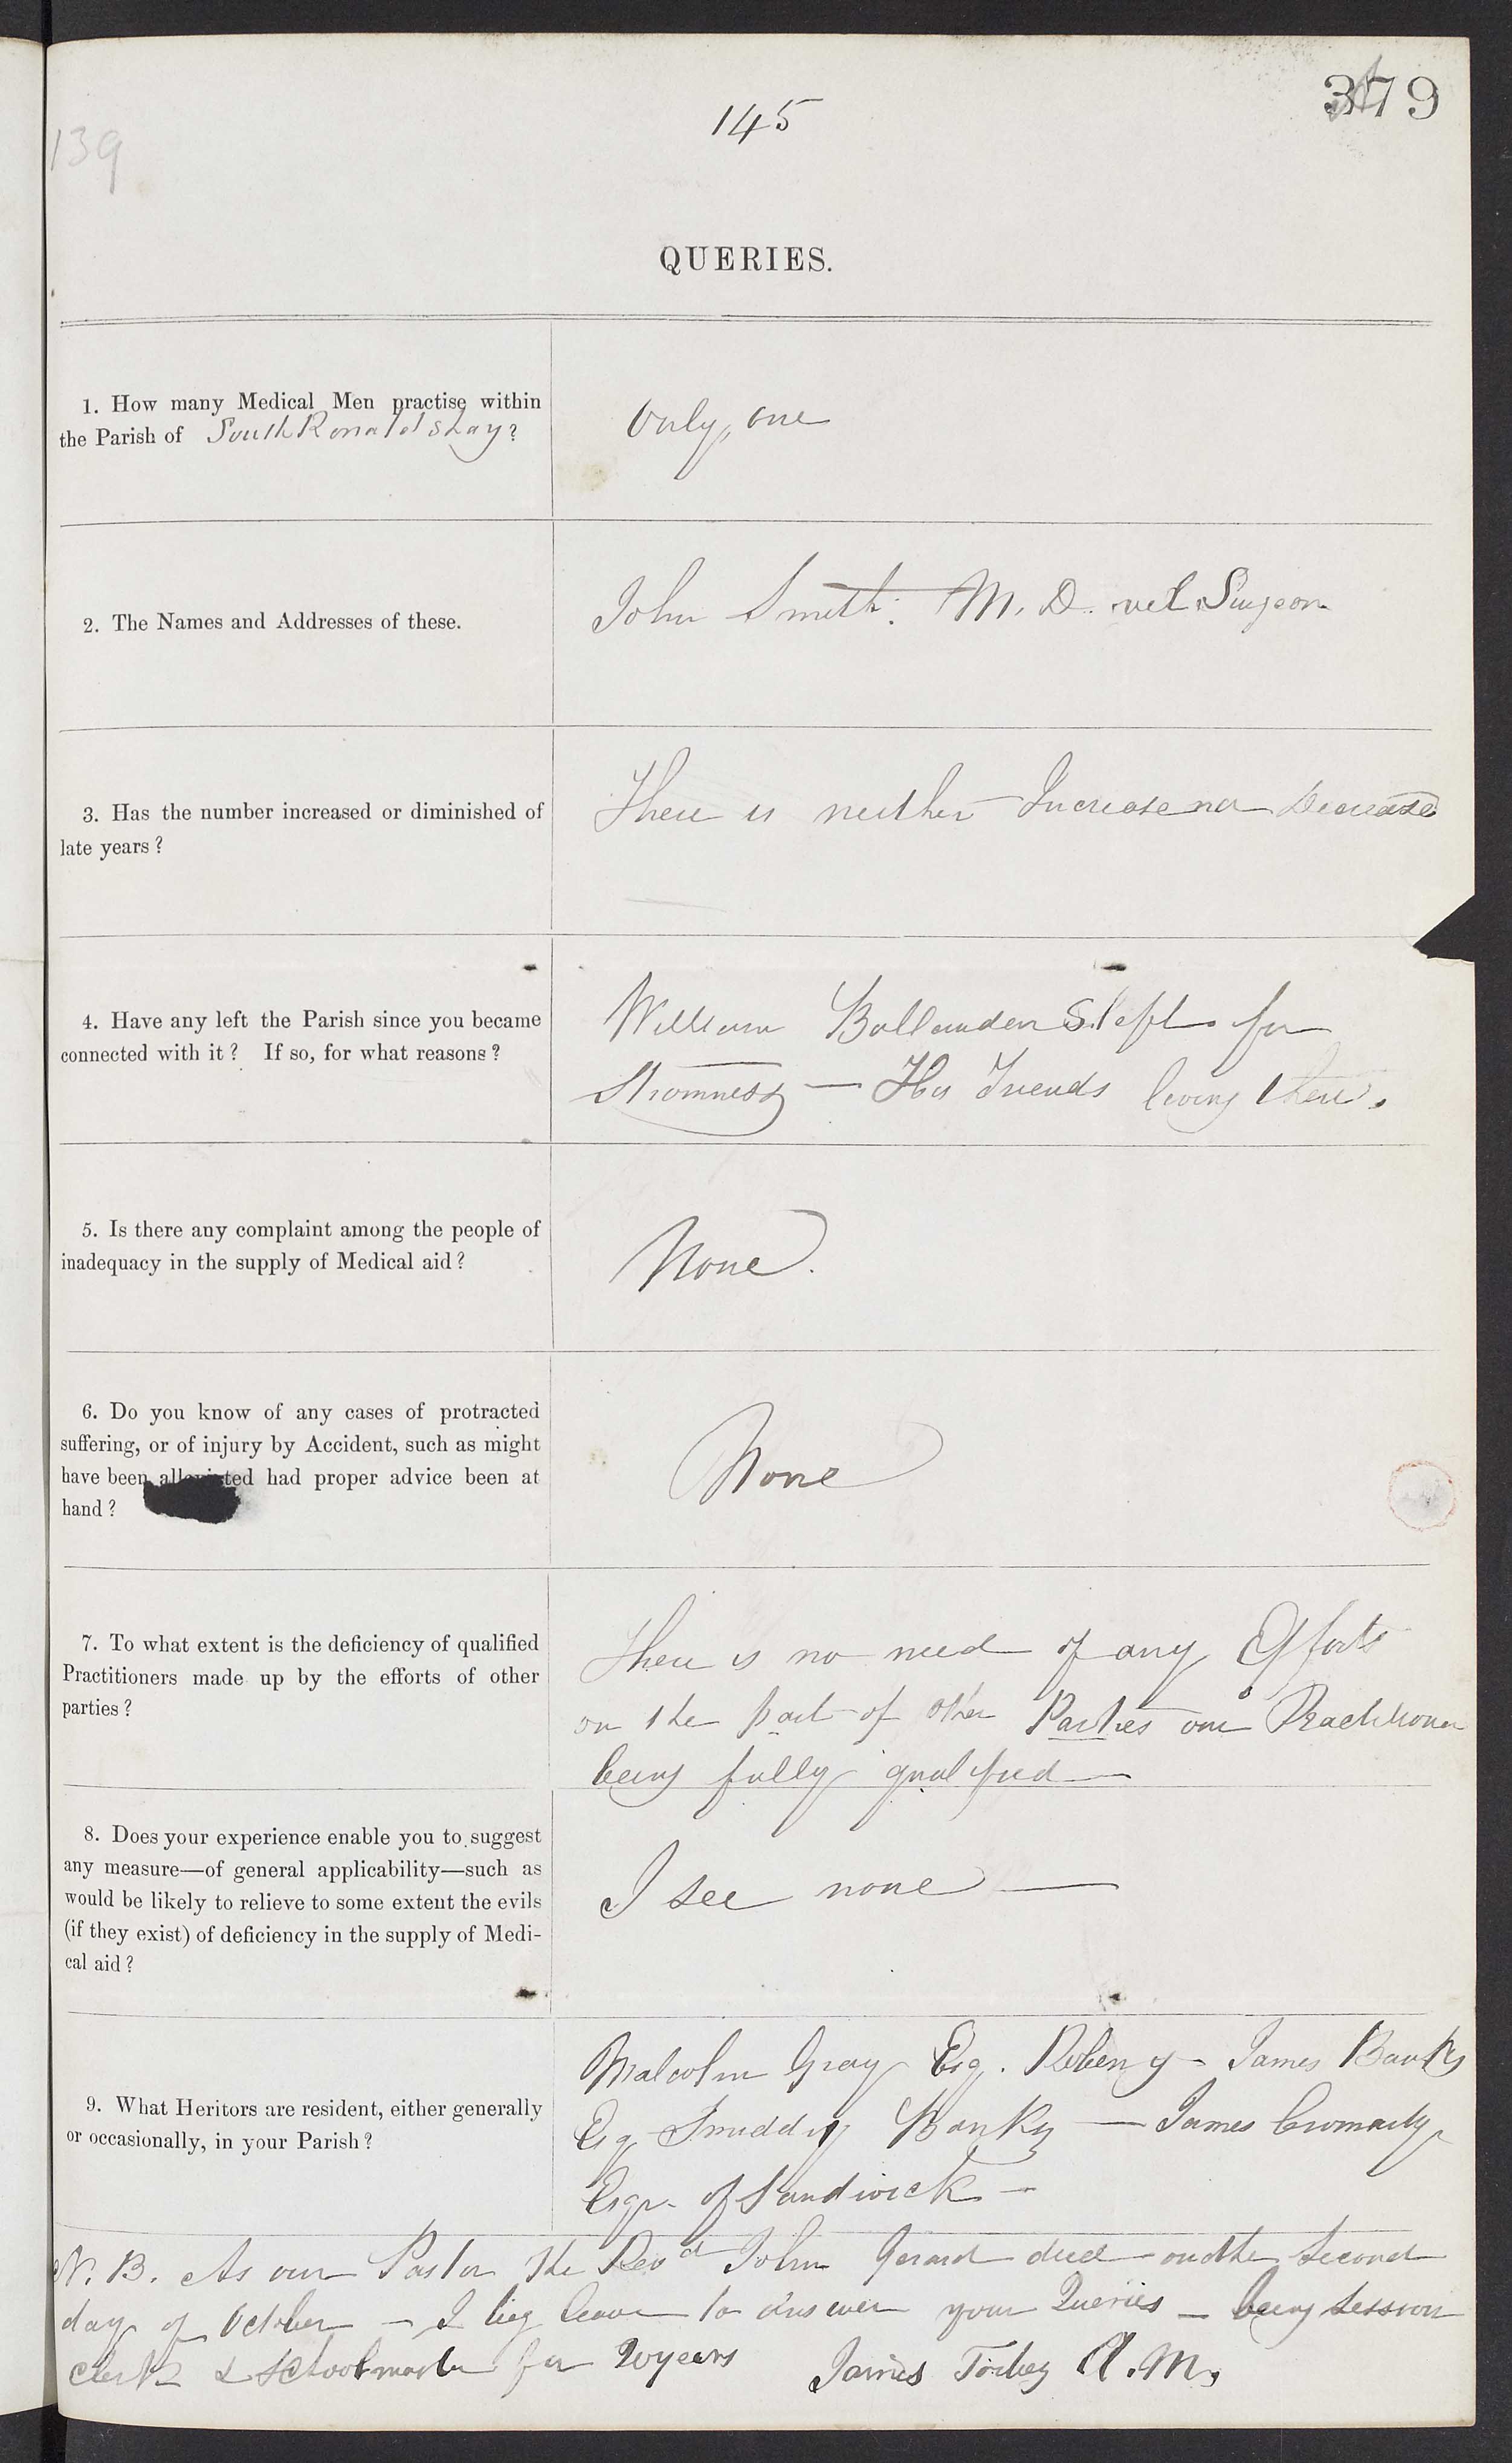 379
145
139
QUERIES.
1. How many Medical Men practise within
the Parish of South Ronaldshay?
Only one
2. The Names and Addresses of these.
John Smith. M. D. vel Surgeon
3. Has the number increased or diminished of
late years?
There is neither Increase nor Decrease
4. Have any left the Parish since you became
connected with it? If so, for what reasons?
William Ballenden S. left for
Stromness — His Friends living there.
5. Is there any complaint among the people of
inadequacy in the supply of Medical aid?
None.
6. Do you know of any cases of protracted
suffering, or of injury by Accident, such as might
have been alleviated had proper advice been at
hand?
None
7. To what extent is the deficiency of qualified
Practitioners made up by the efforts of other
parties?
There is no need of any Efforts
on the part of other Parties our Practitioner
being fully qualified —
8. Does your experience enable you to suggest
any measure—of general applicability—such as
would be likely to relieve to some extent the evils
(if they exist) of deficiency in the supply of Medi-
cal aid?
I see none —
9. What Heritors are resident, either generally
or occasionally, in your Parish?
Malcolm Gray Esq. — James Banks
Esq Smiddy Banks — James Cromarty
Esqr. of Sandwick —
N. B. As our Pastor the Revd John Gerard died on the Second
day of October — I beg leave to answer your Queries — being Session
Clerk & Schoolmaster for 20 years James A. M.